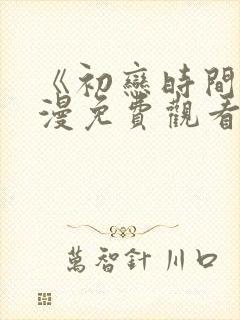 《初戀時間
漫免費觀看
萬智針 川口